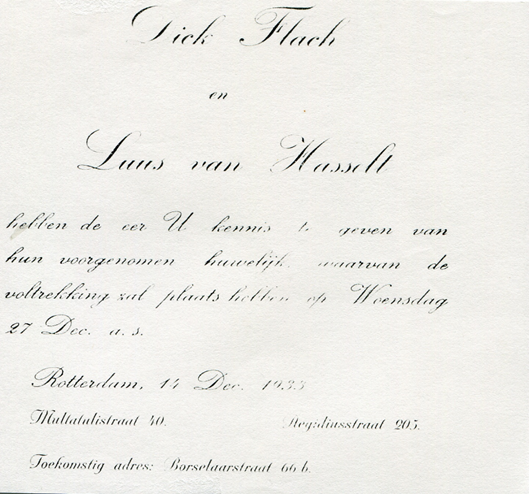 Dick Flach
en
Luus van Hasselt
hebben de eer U kennis te geven van
hun voorgenomen huwelijk, waarvan de
voltrekking zal plaats hebben op Woensdag
27 Dec. a. s.
Rotterdam, 14 Dec. 1933
Multatulistraat 40. Aegidiusstraat 205.
Toekomstig adres: Borselaarstraat 66 b.